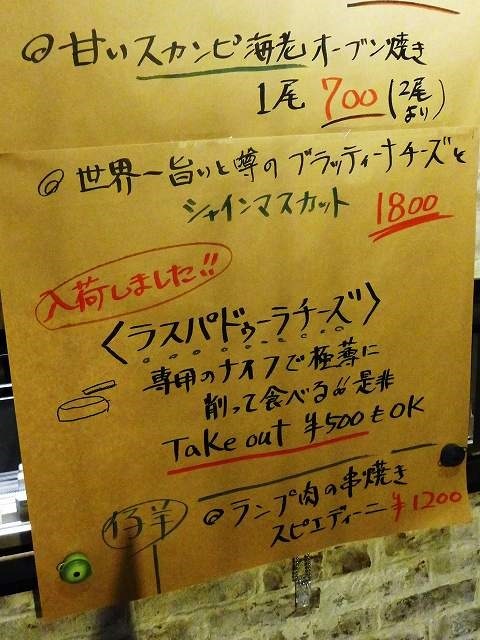 ◎甘いスカンピ海老オーブン焼き
1尾 700(2尾より)
◎世界一旨いと噂のブラッティーナチーズと
シャインマスカット 1800
入荷しました!!
〈ラスパドゥーラチーズ〉
専用のナイフで極薄に
削って食べる〃是非
Take out ¥500もOK
仔羊 ◎ランプ肉の串焼き
スピエディーニ ¥1200